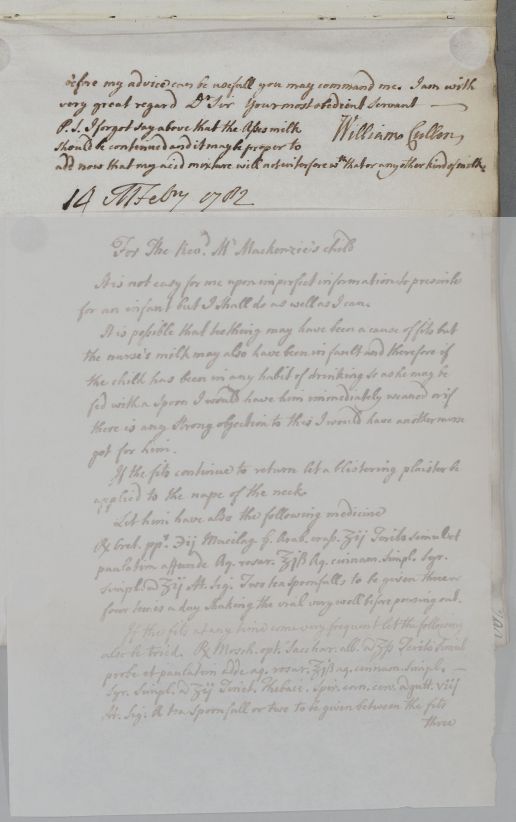 before my advice can be usefull you may command me. I am with
very great regard Dr Sir Your most obedient Servant
P.S. I forgot say above that the Asses milk William Cullen
should be continued and it may be proper to
add now that my acid mixture will not interfere wth that or any other kind of milk.
14 Febry 1782
For The Revd. Mr Mackenzie's child
It is not easy for me upon imperfect information to prescribe
for an infant but I shall do as well as I can.
It is possible that teething may have been a cause of fits but
the nurse's milk may also have been in fault and therefore if
the child has been in any habit of drinking so as he may be
fed with a spoon I would have him immediately weaned or if
there is any strong objection to this I would have another nurse
got for him.
If the fits continue to return let a blistering plaister be
applied to the nape of the neck
Let him have also the following medicine
Rx Cret. ppt. ʒij Mucilag. G. Arab. ʒij Terito simul et
paulatim affunde Aq. rosar. ℥jß Aq. cinnam. simpl. Syr.
simpl. a ʒij M. Sig. Two teaspoonfulls to be given three or
four times a day shaking the vial very well before pouring out.
If the fits at any time come very frequent let the following
also be tried. Rx Mosch. opt. Sacchar. alb. a ʒß Terito simul
probe et paulatim adde aq. rosar. ℥jß aq. cinnam. simpl.
Syr. Simpl. a ʒij Tinct. Thebaic. Spir. corn. cerv. a gutt. viij
M. Sig. A tea spoonfull or two to be given between the fits
three